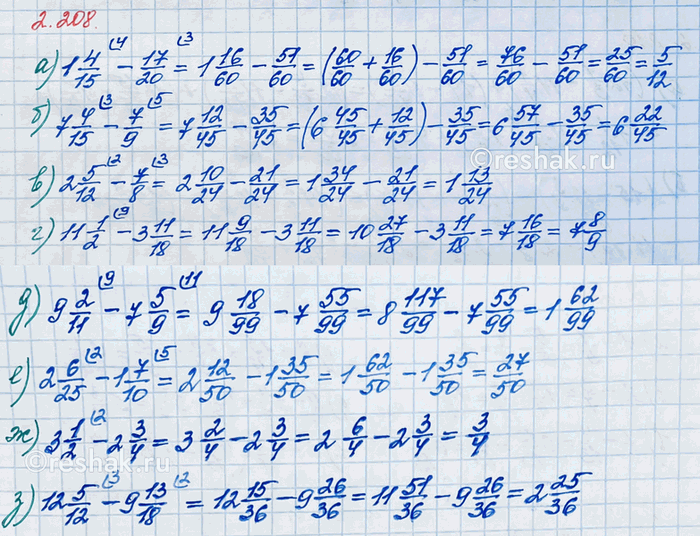 2.208.
а) 1 4/15 (4 − 17/20 (3 = 1 16/60 − 51/60 = (60/60 + 16/60) − 51/60 = 76/60 − 51/60 = 25/60 = 5/12
б) 7 4/15 (3 − 7/9 (5 = 7 12/45 − 35/45 = (6 45/45 + 12/45) − 35/45 = 6 57/45 − 35/45 = 6 22/45
в) 2 5/12 (2 − 7/8 (3 = 2 10/24 − 21/24 = 1 34/24 − 21/24 = 1 13/24
©reshak.ru
г) 11 1/2 (9 − 3 11/18 = 11 9/18 − 3 11/18 = 10 27/18 − 3 11/18 = 7 16/18 = 7 8/9
д) 9 2/11 (9 − 7 5/9 (11 = 9 18/99 − 7 55/99 = 8 117/99 − 7 55/99 = 1 62/99
е) 2 6/25 (2 − 1 7/10 (5 = 2 12/50 − 1 35/50 = 1 62/50 − 1 35/50 = 27/50
ж) 3 1/2 (2 − 2 3/4 = 3 2/4 − 2 3/4 = 2 6/4 − 2 3/4 = 3/4
©reshak.ru
з) 12 5/12 (3 − 9 13/18 (2 = 12 15/36 − 9 26/36 = 11 51/36 − 9 26/36 = 2 25/36